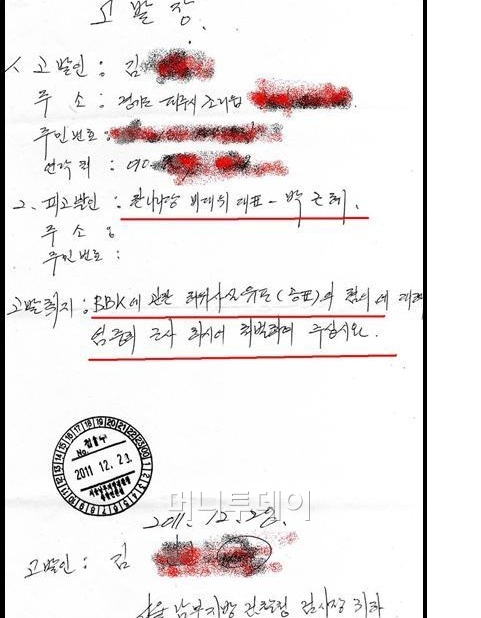 고발장
1. 고발인 : 김
주 소 : 경기도 파주시 조리읍
주민번호 :
연락처 : 010-
2. 피고발인 : 한나라당 비대위 대표 - 박근혜.
주 소 :
주민번호 :
고발취지 : BBK에 관한 허위사실유포(공표)의 혐의에 대해
엄중히 조사 하시어 처벌하여 주십시요.
접수
No.
2011. 12. 23
머니투데이
2011. 12. 20.
고발인 : 김
서울 남부지방 검찰청 검사장 귀하